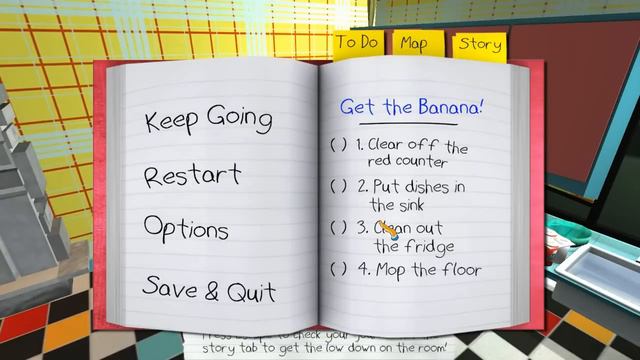 To Do
Map
Story
Keep Going
Restart
Options
Save & Quit
Get the Banana!
( ) 1. Clear off the
red counter
( ) 2. Put dishes in
the sink
( ) 3. Clean out
the fridge
( ) 4. Mop the floor
to check your
story tab to get the low down on the room!